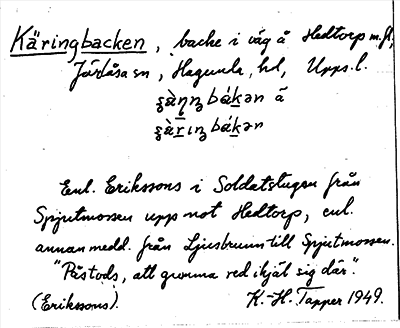 Käringbacken, backe i väg å Hedtorp m. fl,
Järlåsa sn, Hagunda hd, Upps. l.
bákən å
bákən
Enl. Erikssons i Soldatstugan från
Spjutmossen upp mot Hedtorp, enl.
annan medd. från Ljusbrunn till Spjutmossen.
"Påstods, att gumma red ihjäl sig där."
(Erikssons). K.-H. Tapper 1949.